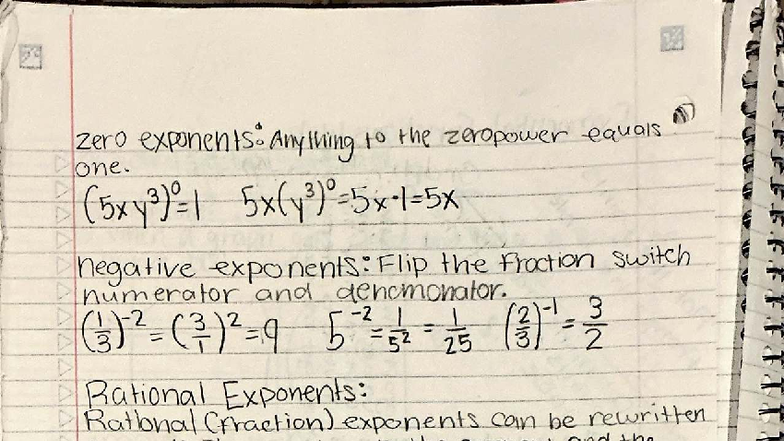 zero exponents: Anything to the zeropower equals
one.
(5xy³)⁰=1 5x(y³)⁰=5x·1=5x
negative exponents: Flip the fraction switch
numerator and denomonator.
(1/3)⁻²=(3/1)²=9 5⁻²=1/5²=1/25 (2/3)⁻¹=3/2
Rational Exponents:
Rational (fraction) exponents can be rewritten
and the